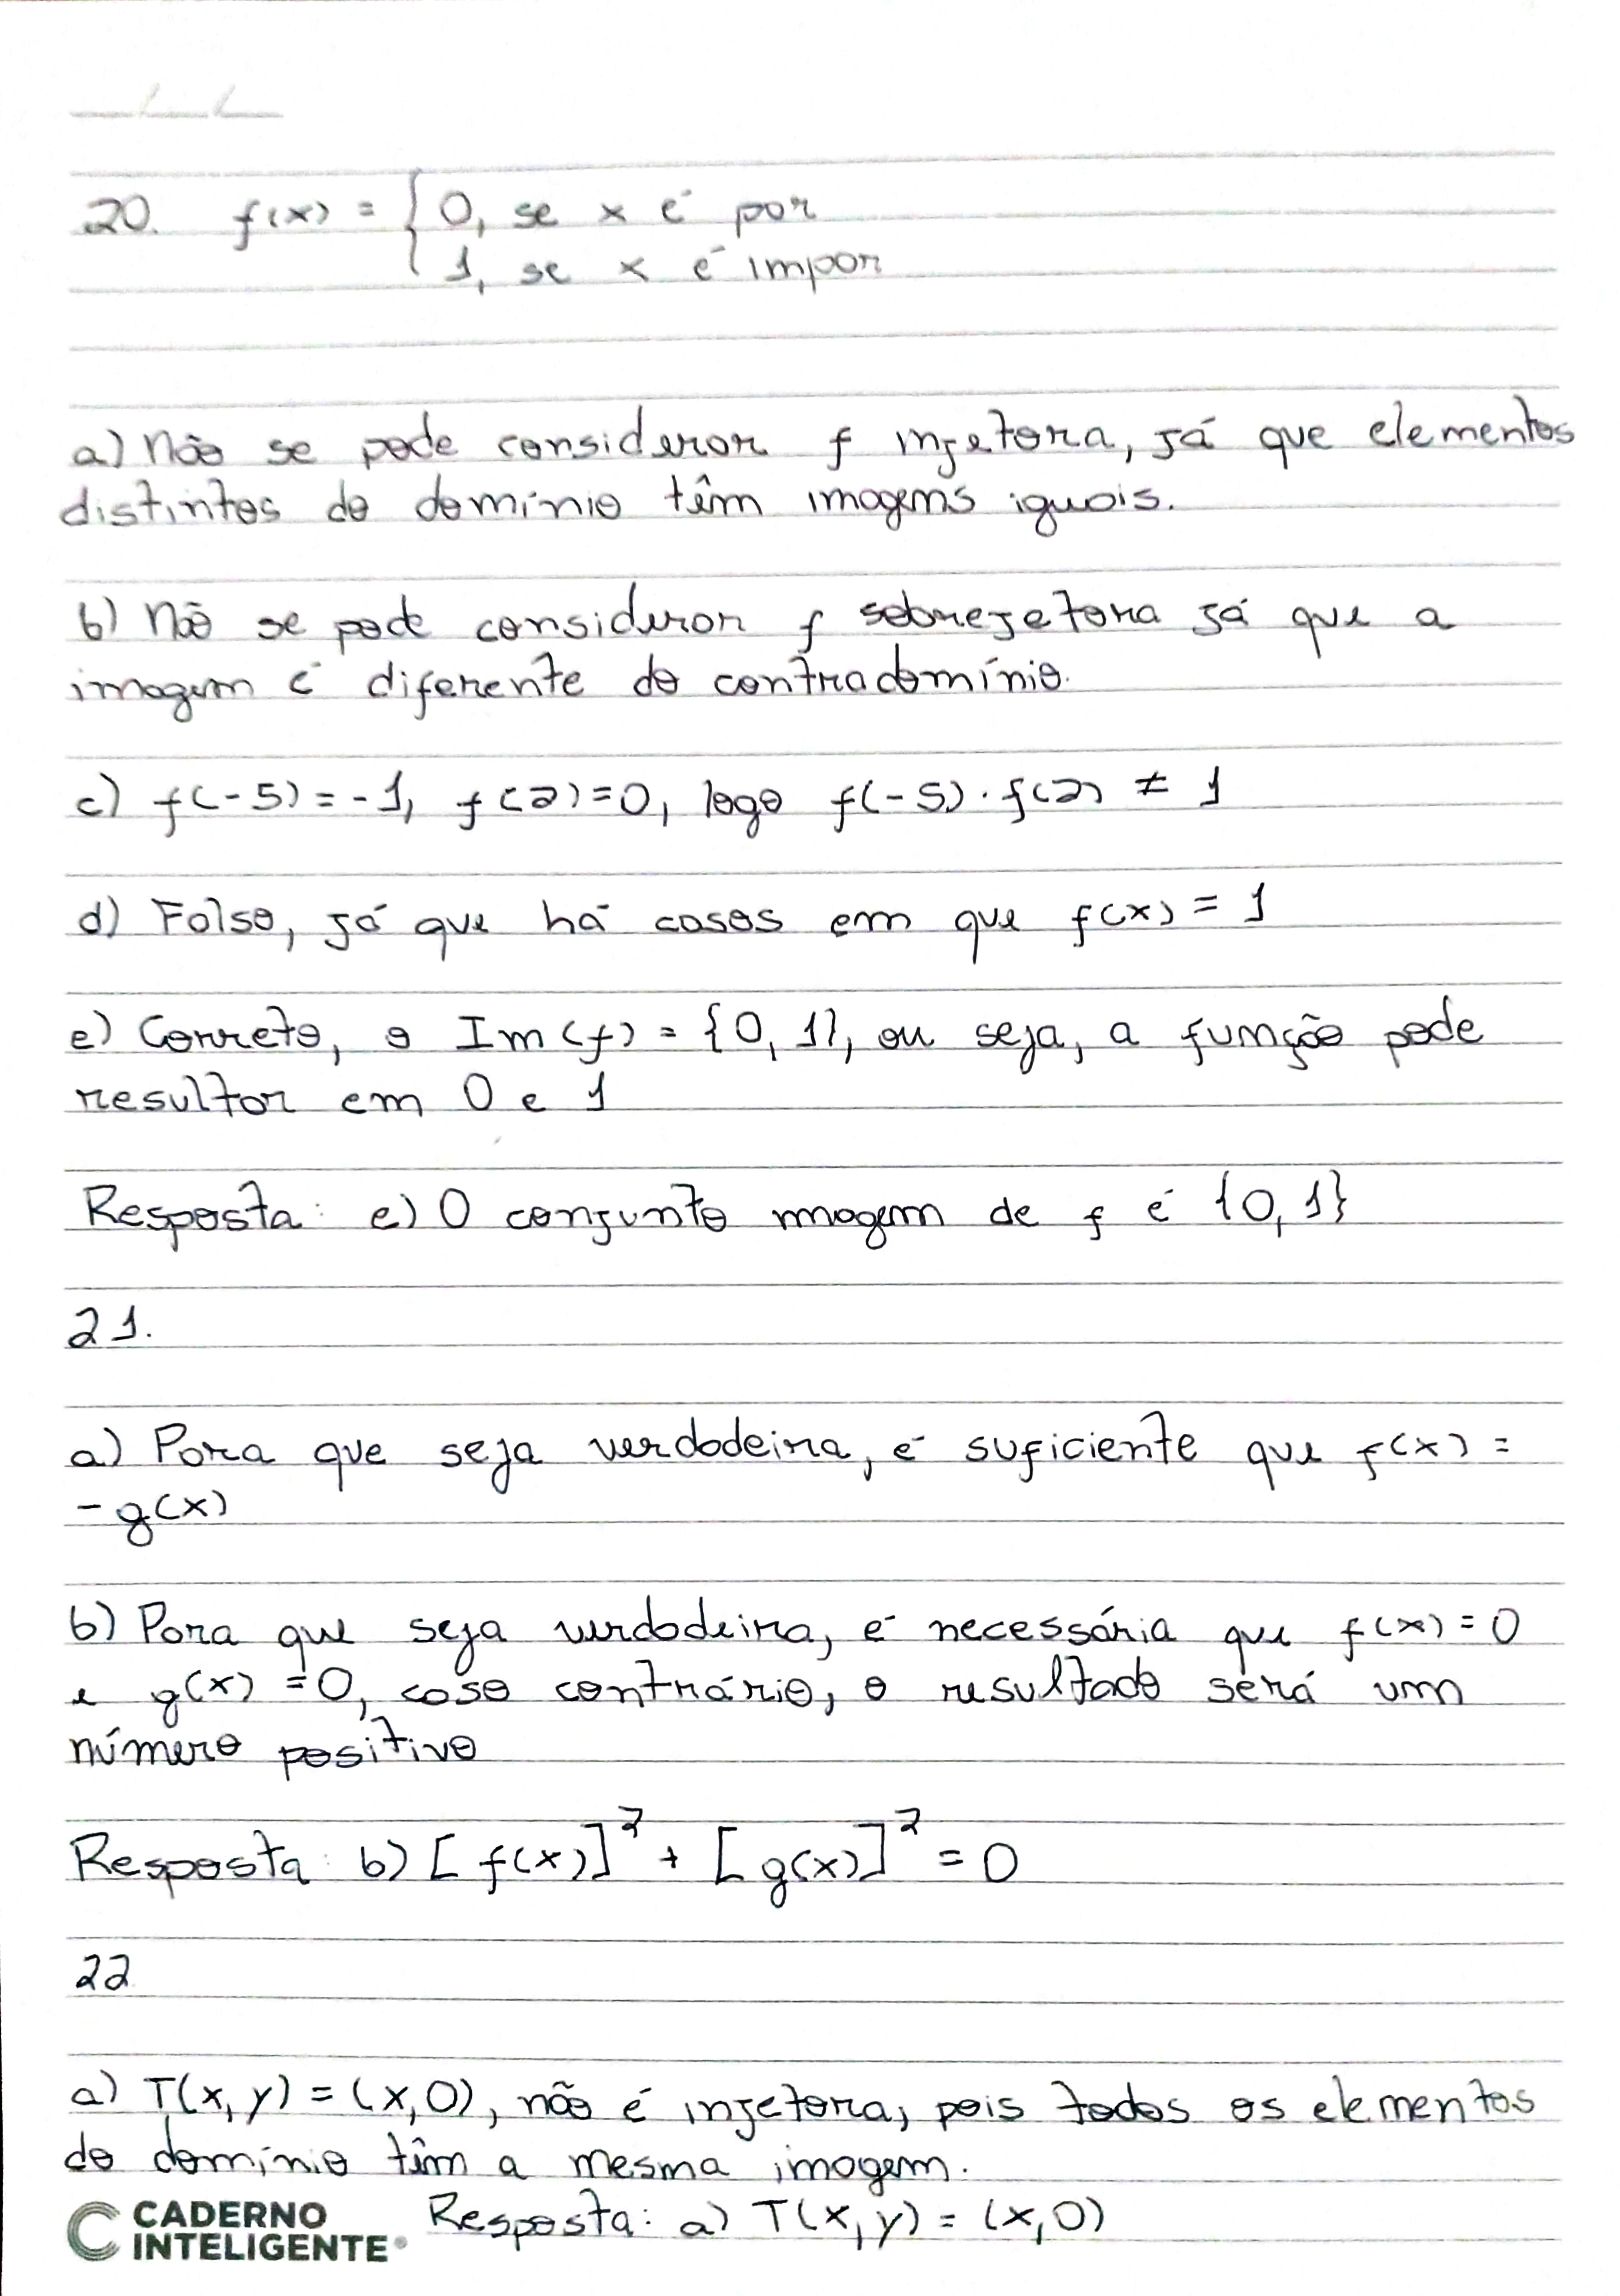 20. f(x) = { 0, se x é par
1, se x é impar
a) Não se pode considerar f injetora, já que elementos
distintos do domínio têm imagens iguais.
b) Não se pode considerar f sobrejetora já que a
imagem é diferente do contradomínio.
c) f(-5) = -1, f(2) = 0, logo f(-5) · f(2) ≠ 1
d) Falso, já que há casos em que f(x) = 1
e) Correto, o Im(f) = {0, 1}, ou seja, a função pode
resultar em 0 e 1
Resposta: e) O conjunto imagem de f é {0, 1}
21.
a) Para que seja verdadeira, é suficiente que f(x) =
-g(x)
b) Para que seja verdadeira, é necessária que f(x) = 0
e g(x) = 0, caso contrário, o resultado será um
número positivo
Resposta: b) [f(x)]² + [g(x)]² = 0
22
a) T(x, y) = (x, 0), não é injetora, pois todos os elementos
do domínio têm a mesma imagem.
Resposta: a) T(x, y) = (x, 0)
CADERNO
INTELIGENTE